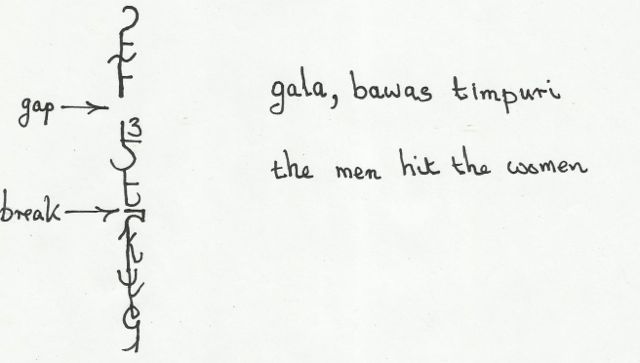 gap
gala, bawas timpuri
the men hit the women
break